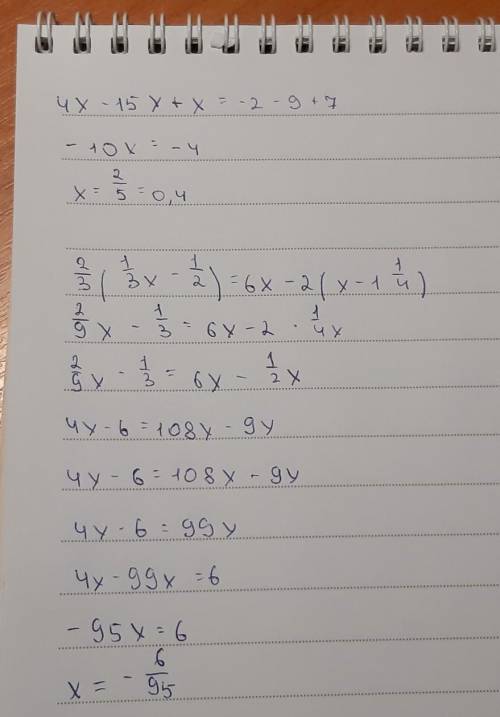 4x - 15x + x = -2 - 9 + 7
- 10x = -4
x = 2/5 = 0,4
2/3 ( 1/3 x - 1/2 ) = 6x - 2 ( x - 1 1/4 )
2/9 x - 1/3 = 6x - 2 · 1/4 x
2/9 x - 1/3 = 6x - 1/2 x
4x - 6 = 108x - 9x
4x - 6 = 108x - 9x
4x - 6 = 99x
4x - 99x = 6
- 95x = 6
x = - 6/95